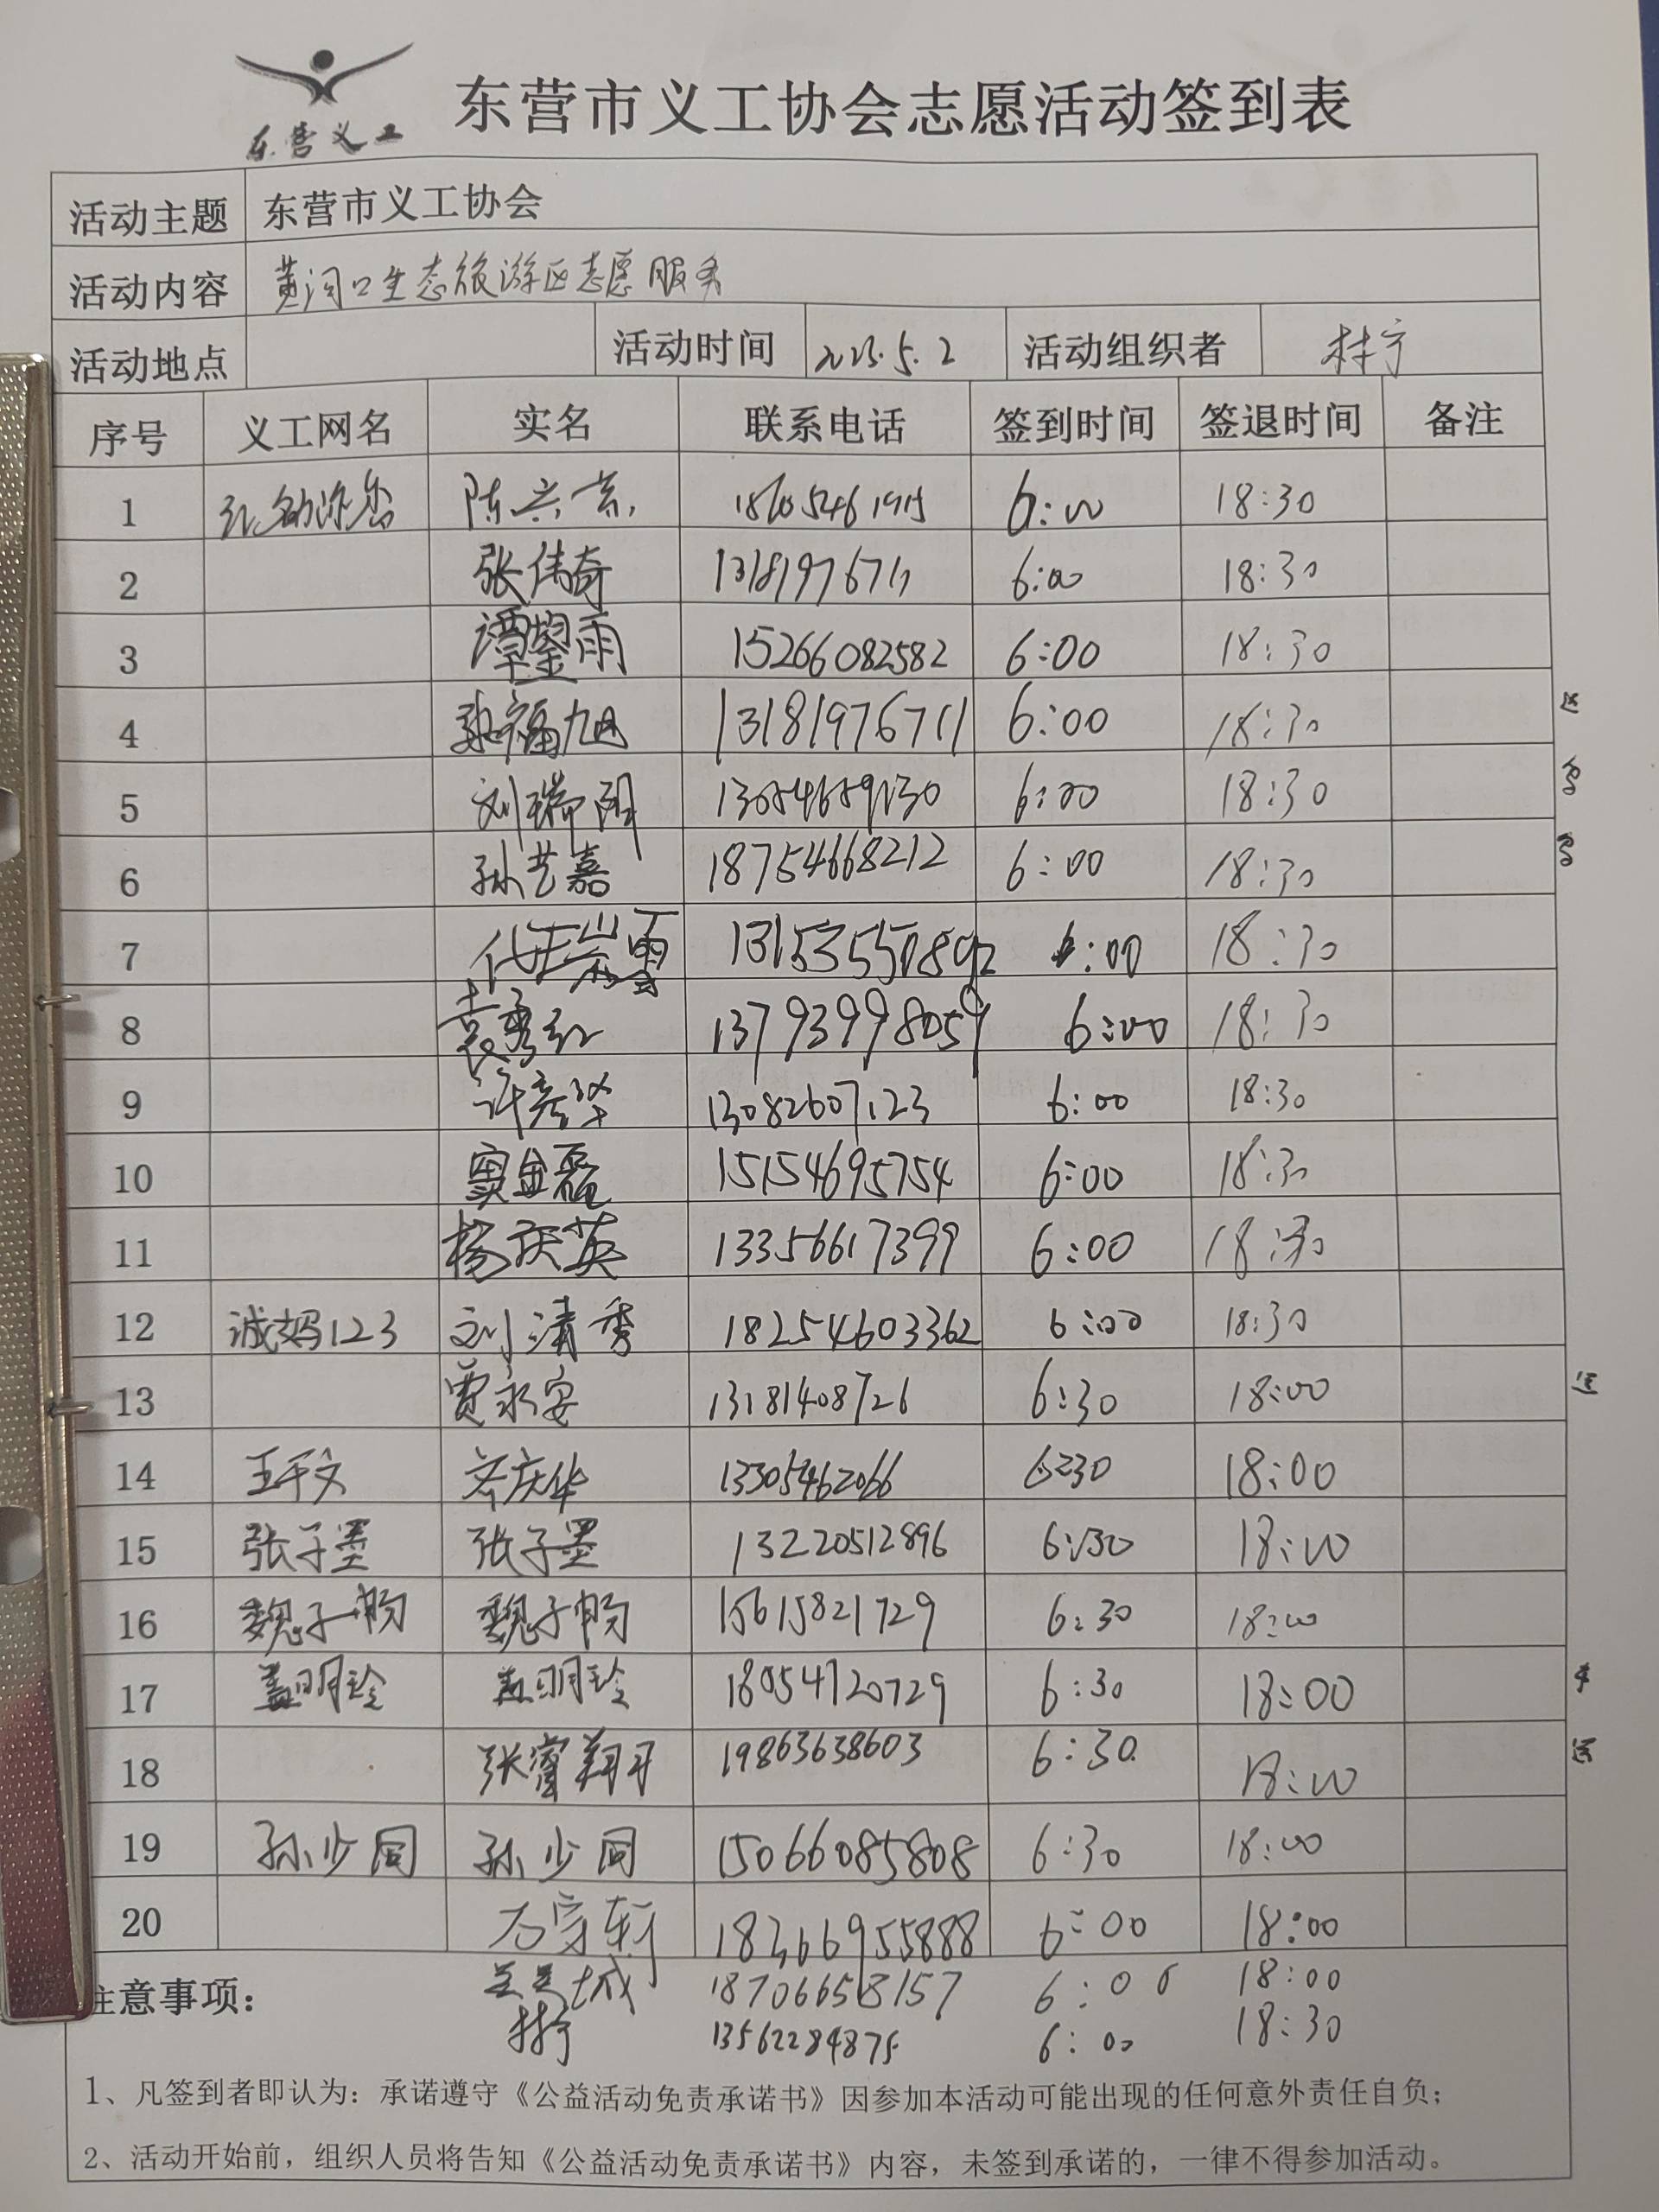 东营义工
东营市义工协会志愿活动签到表
活动主题 东营市义工协会
活动内容 黄河口生态旅游区志愿服务
活动地点 活动时间 2025.5.2 活动组织者 林宁
序号 义工网名 实名 联系电话 签到时间 签退时间 备注
1 6:00 18:30
2 张伟奇 1318197671 6:00 18:30
3 谭鋆雨 15266082582 6:00 18:30
4 张福旭 13181976711 6:00 18:30
5 刘瑞阳 6:00 18:30
6 孙艺嘉 18754668212 6:00 18:30
7 6:00 18:30
8 袁秀红 13793998059 6:00 18:30
9 13082607123 6:00 18:30
10 窦金磊 15154695754 6:00 18:30
11 杨庆英 13356617399 6:00 18:30
12 诚妈123 刘清秀 18254603362 6:00 18:30
13 贾永安 13181408726 6:30 18:00
14 13305462066 6:30 18:00
15 张子墨 张子墨 13220512896 6:30 18:00
16 魏子畅 魏子畅 15615821729 6:30 18:00
17 盖明玲 盖明玲 18054720729 6:30 18:00
18 张 19863638603 6:30 18:00
19 孙少同 孙少同 15066085808 6:30 18:00
20 18366955888 6:00 18:00
18706658157 6:00 18:00
注意事项:
林宁 13562284875 6:00 18:30
1、凡签到者即认为：承诺遵守《公益活动免责承诺书》因参加本活动可能出现的任何意外责任自负；
2、活动开始前，组织人员将告知《公益活动免责承诺书》内容，未签到承诺的，一律不得参加活动。